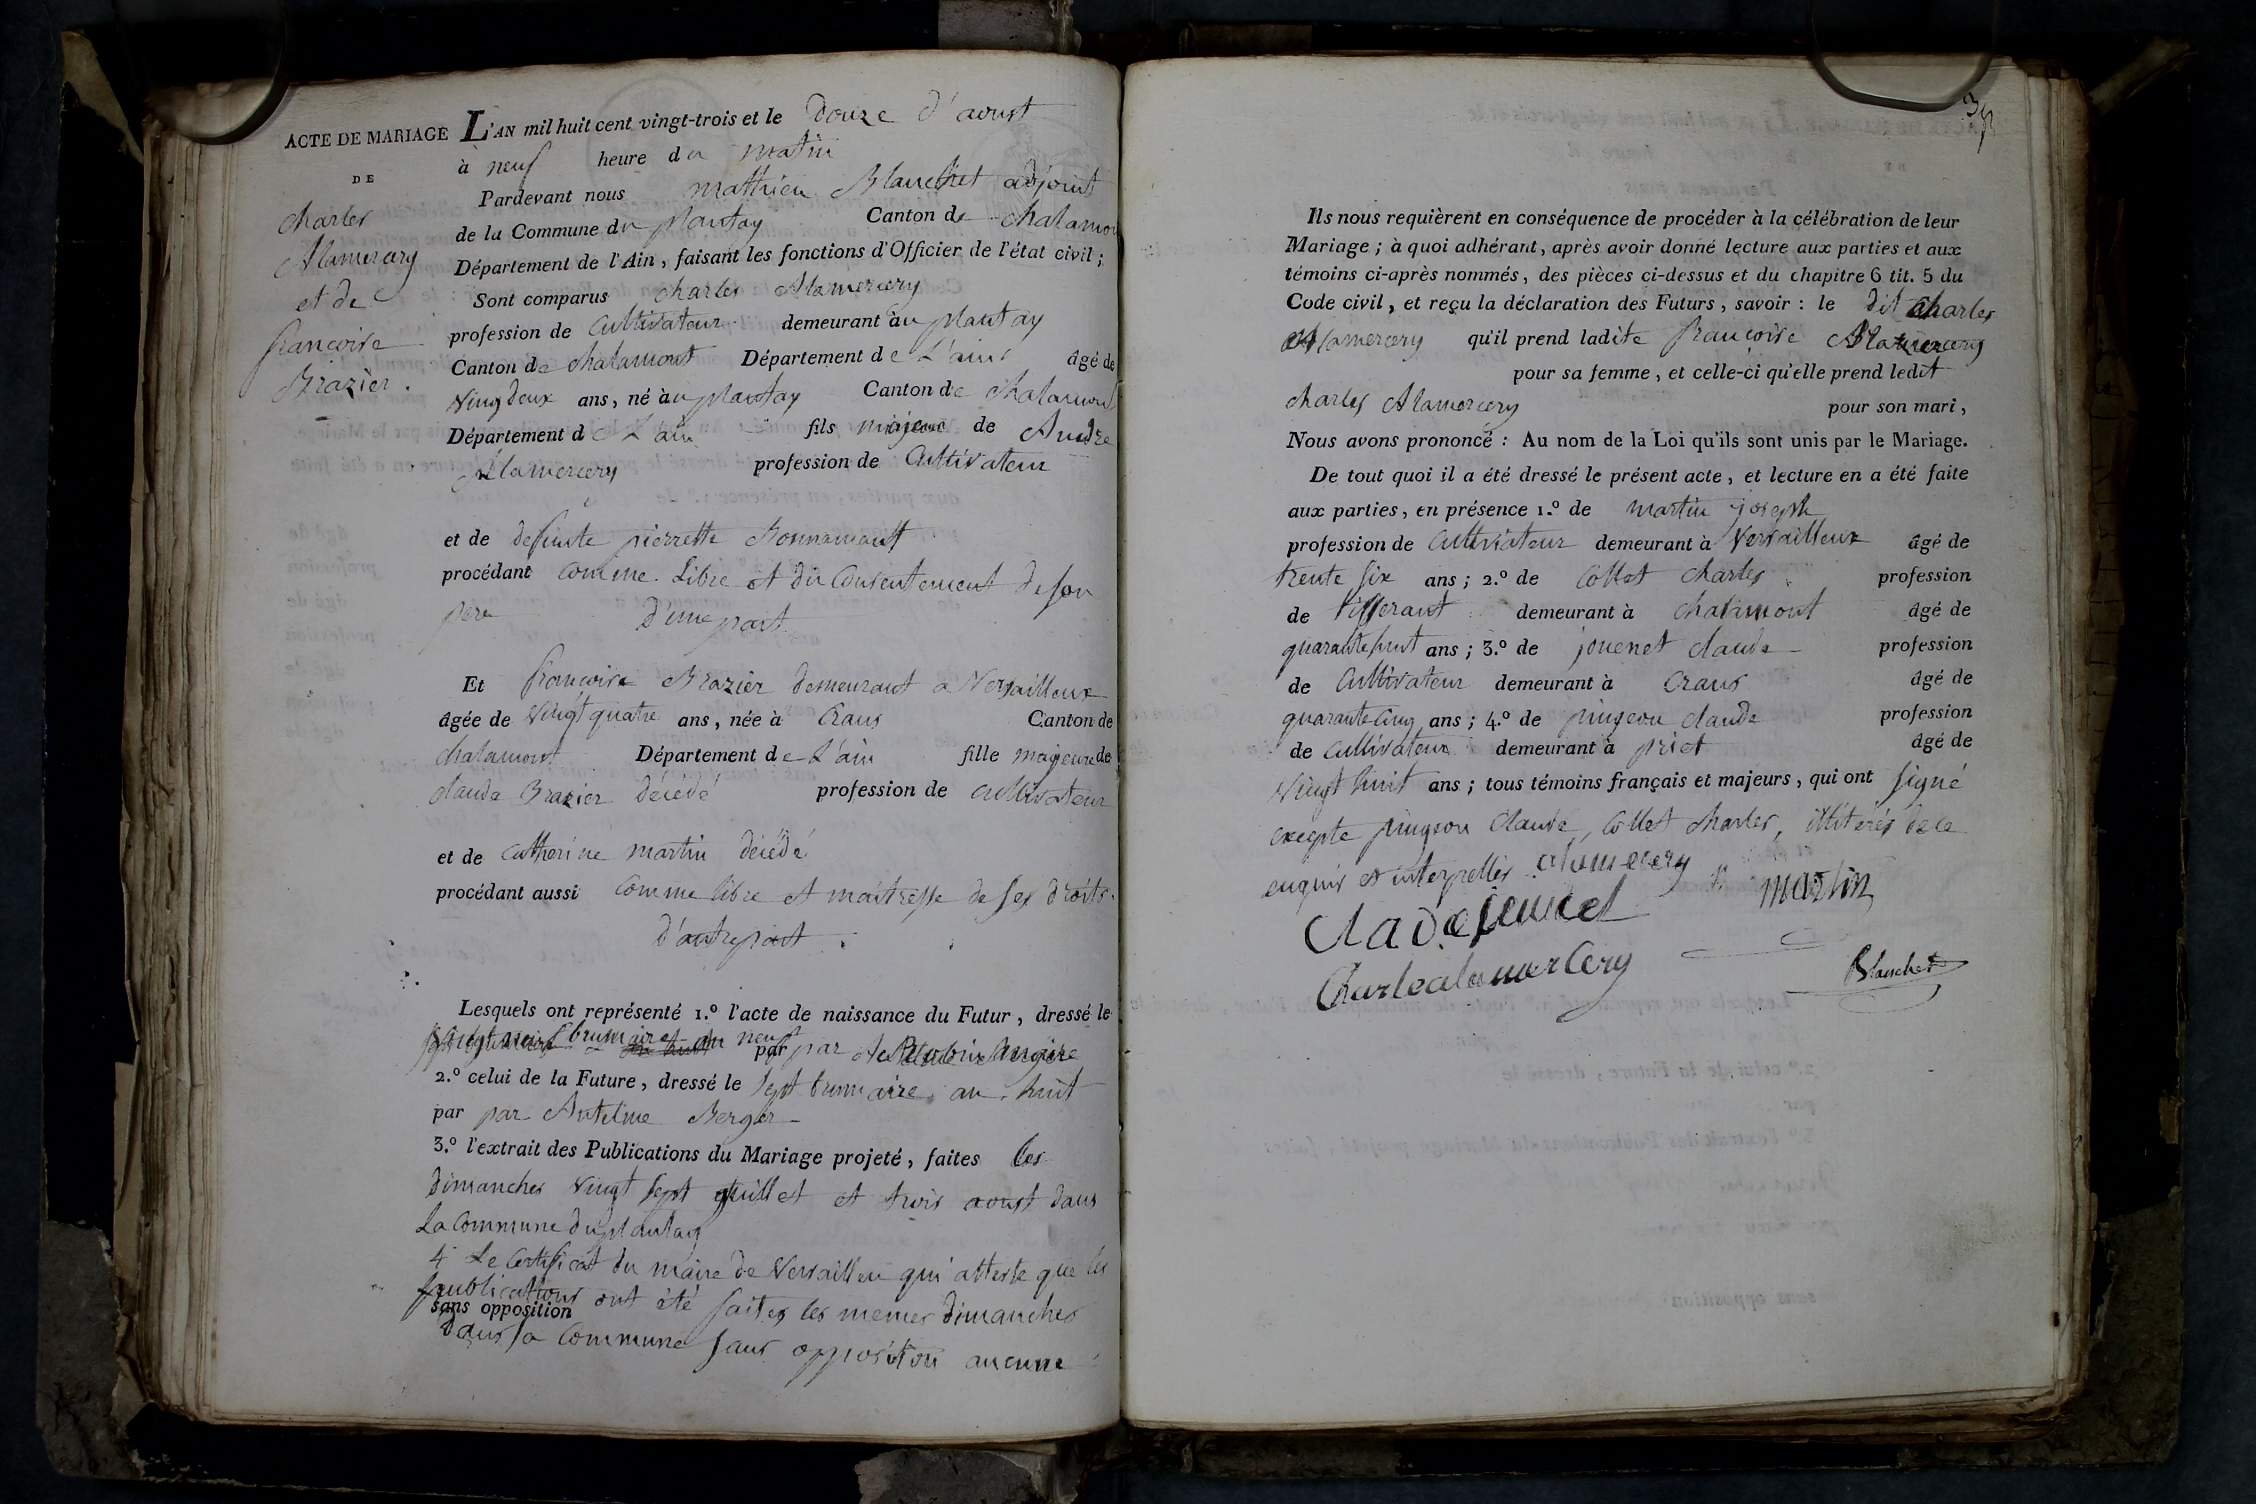 ACTE DE MARIAGE
DE
charles
Alamercery
et de
francoise
Brazier.
L'AN mil huit cent vingt-trois et le Douze d'aoust
à neuf heure du matin
Pardevant nous mathieu Blanchet adjoint
de la Commune du plantay Canton de chalamont
Département de l'Ain, faisant les fonctions d'Officier de l'état civil;
Sont comparus charles Alamercery
profession de Cultivateur demeurant au plantay
Canton de chalamont Département de L'ain âgé de
Vingdeux ans, né au plantay Canton de chalamont
Département de L'ain fils majeur de Andre
Alamercery profession de Cultivateur
et de defunte pierrette Bonnamant
procédant comme Libre et du Consentement de son
pere D'une part
Et francoise Brazier demeurant a Versailleux
âgée de Vingt quatre ans, née à Crans Canton de
chalamont Département de L'ain fille majeure de
claude Brazier décédé profession de cultivateur
et de catherine martin décédé
procédant aussi comme libre et maitresse de ses droits.
D'autre part.
Lesquels ont représenté 1.º l'acte de naissance du Futur, dressé le
brumaire an neuf par par
2.º celui de la Future, dressé le sept brumaire an huit
par par Antelme Berger
3.º l'extrait des Publications du Mariage projeté, faites les
dimanches Vingt sept juillet et trois aoust dans
La Commune du plantay
4º Le Certificat du maire de Versailleu qui atteste que les
publications ont été faites les memes dimanches
sans opposition
dans sa Commune sans opposition aucune
Ils nous requièrent en conséquence de procéder à la célébration de leur
Mariage; à quoi adhérant, après avoir donné lecture aux parties et aux
témoins ci-après nommés, des pièces ci-dessus et du chapitre 6 tit. 5 du
Code civil, et reçu la déclaration des Futurs, savoir: le dit Charles
Alamercery qu'il prend ladite francoise Alamercery
pour sa femme, et celle-ci qu'elle prend ledit
charles Alamercery pour son mari,
Nous avons prononcé: Au nom de la Loi qu'ils sont unis par le Mariage.
De tout quoi il a été dressé le présent acte, et lecture en a été faite
aux parties, en présence 1.º de martin joseph
profession de Cultivateur demeurant à Versailleux âgé de
trente six ans; 2.º de Collet charles profession
de tisserant demeurant à chalamont âgé de
quarantehuit ans; 3.º de jouenet claude profession
de Cultivateur demeurant à Crans âgé de
quarante Cinq ans; 4.º de pingeon claude profession
de cultivateur demeurant à priet âgé de
Vingt huit ans; tous témoins français et majeurs, qui ont signé
excepte pingeon Claude, Collet charles, illiterés de ce
enquis et interpellés alamercery
martin
Charlealamercery
Blanchet